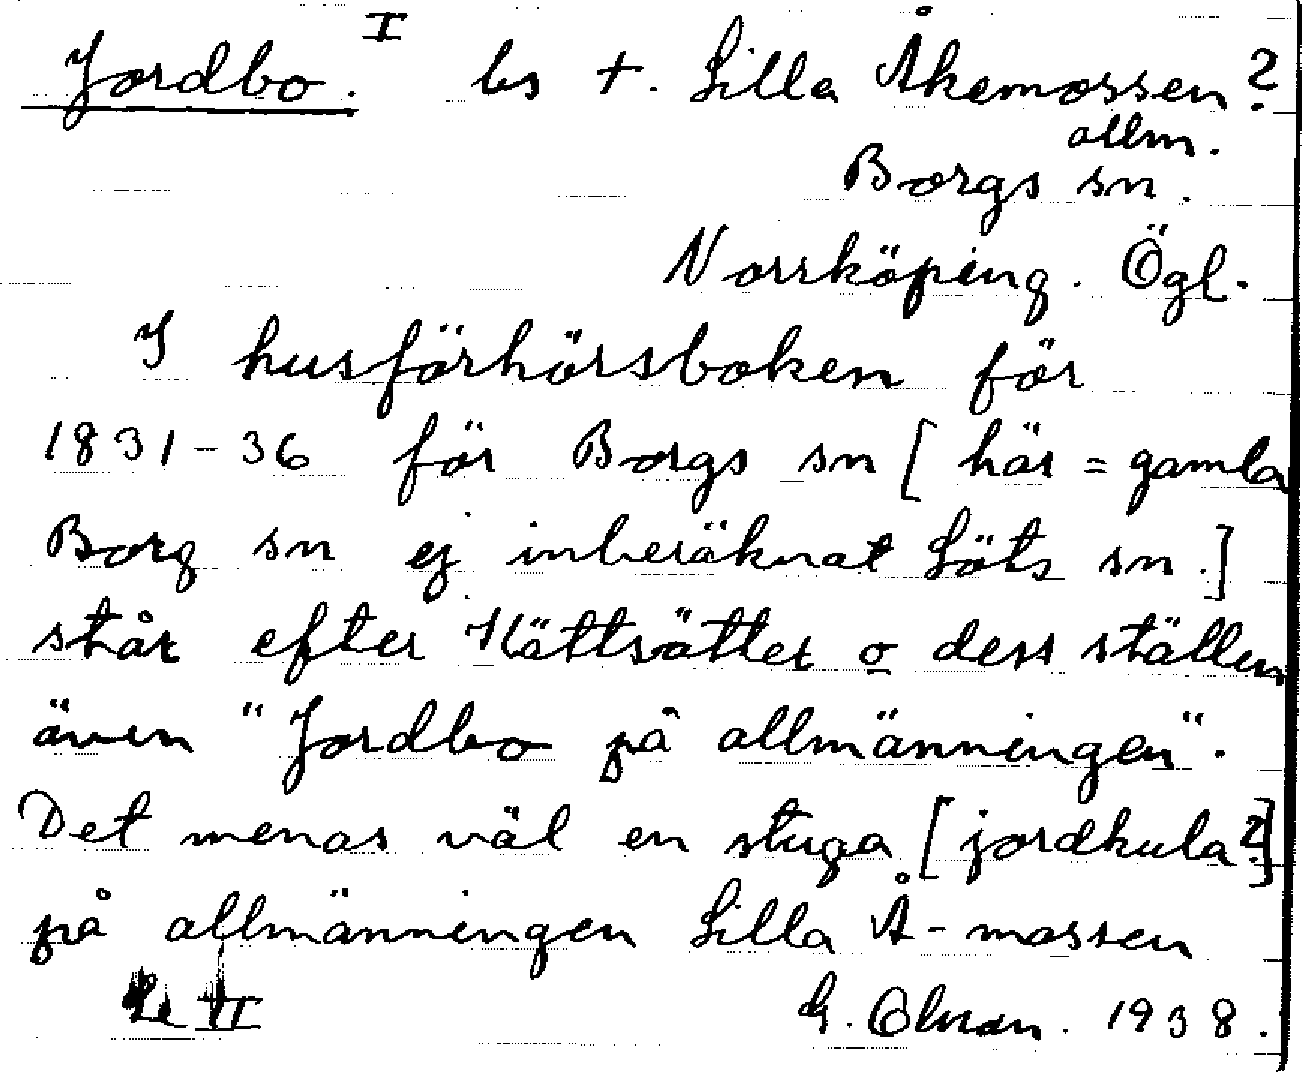 Jordbo. I bs +. Lilla Åkemossen?
allm.
Borgs sn.
Norrköping. Ögl.
I husförhörsboken för
1831-36 för Borgs sn [här = gamla
Borg sn ej inberäknat Löts sn.]
står efter Kättsätter o dess ställen
även "Jordbo på allmänningen".
Det menas väl en stuga [jordkula?]
på allmänningen Lilla Å-mossen
Se II G. Olson. 1938.